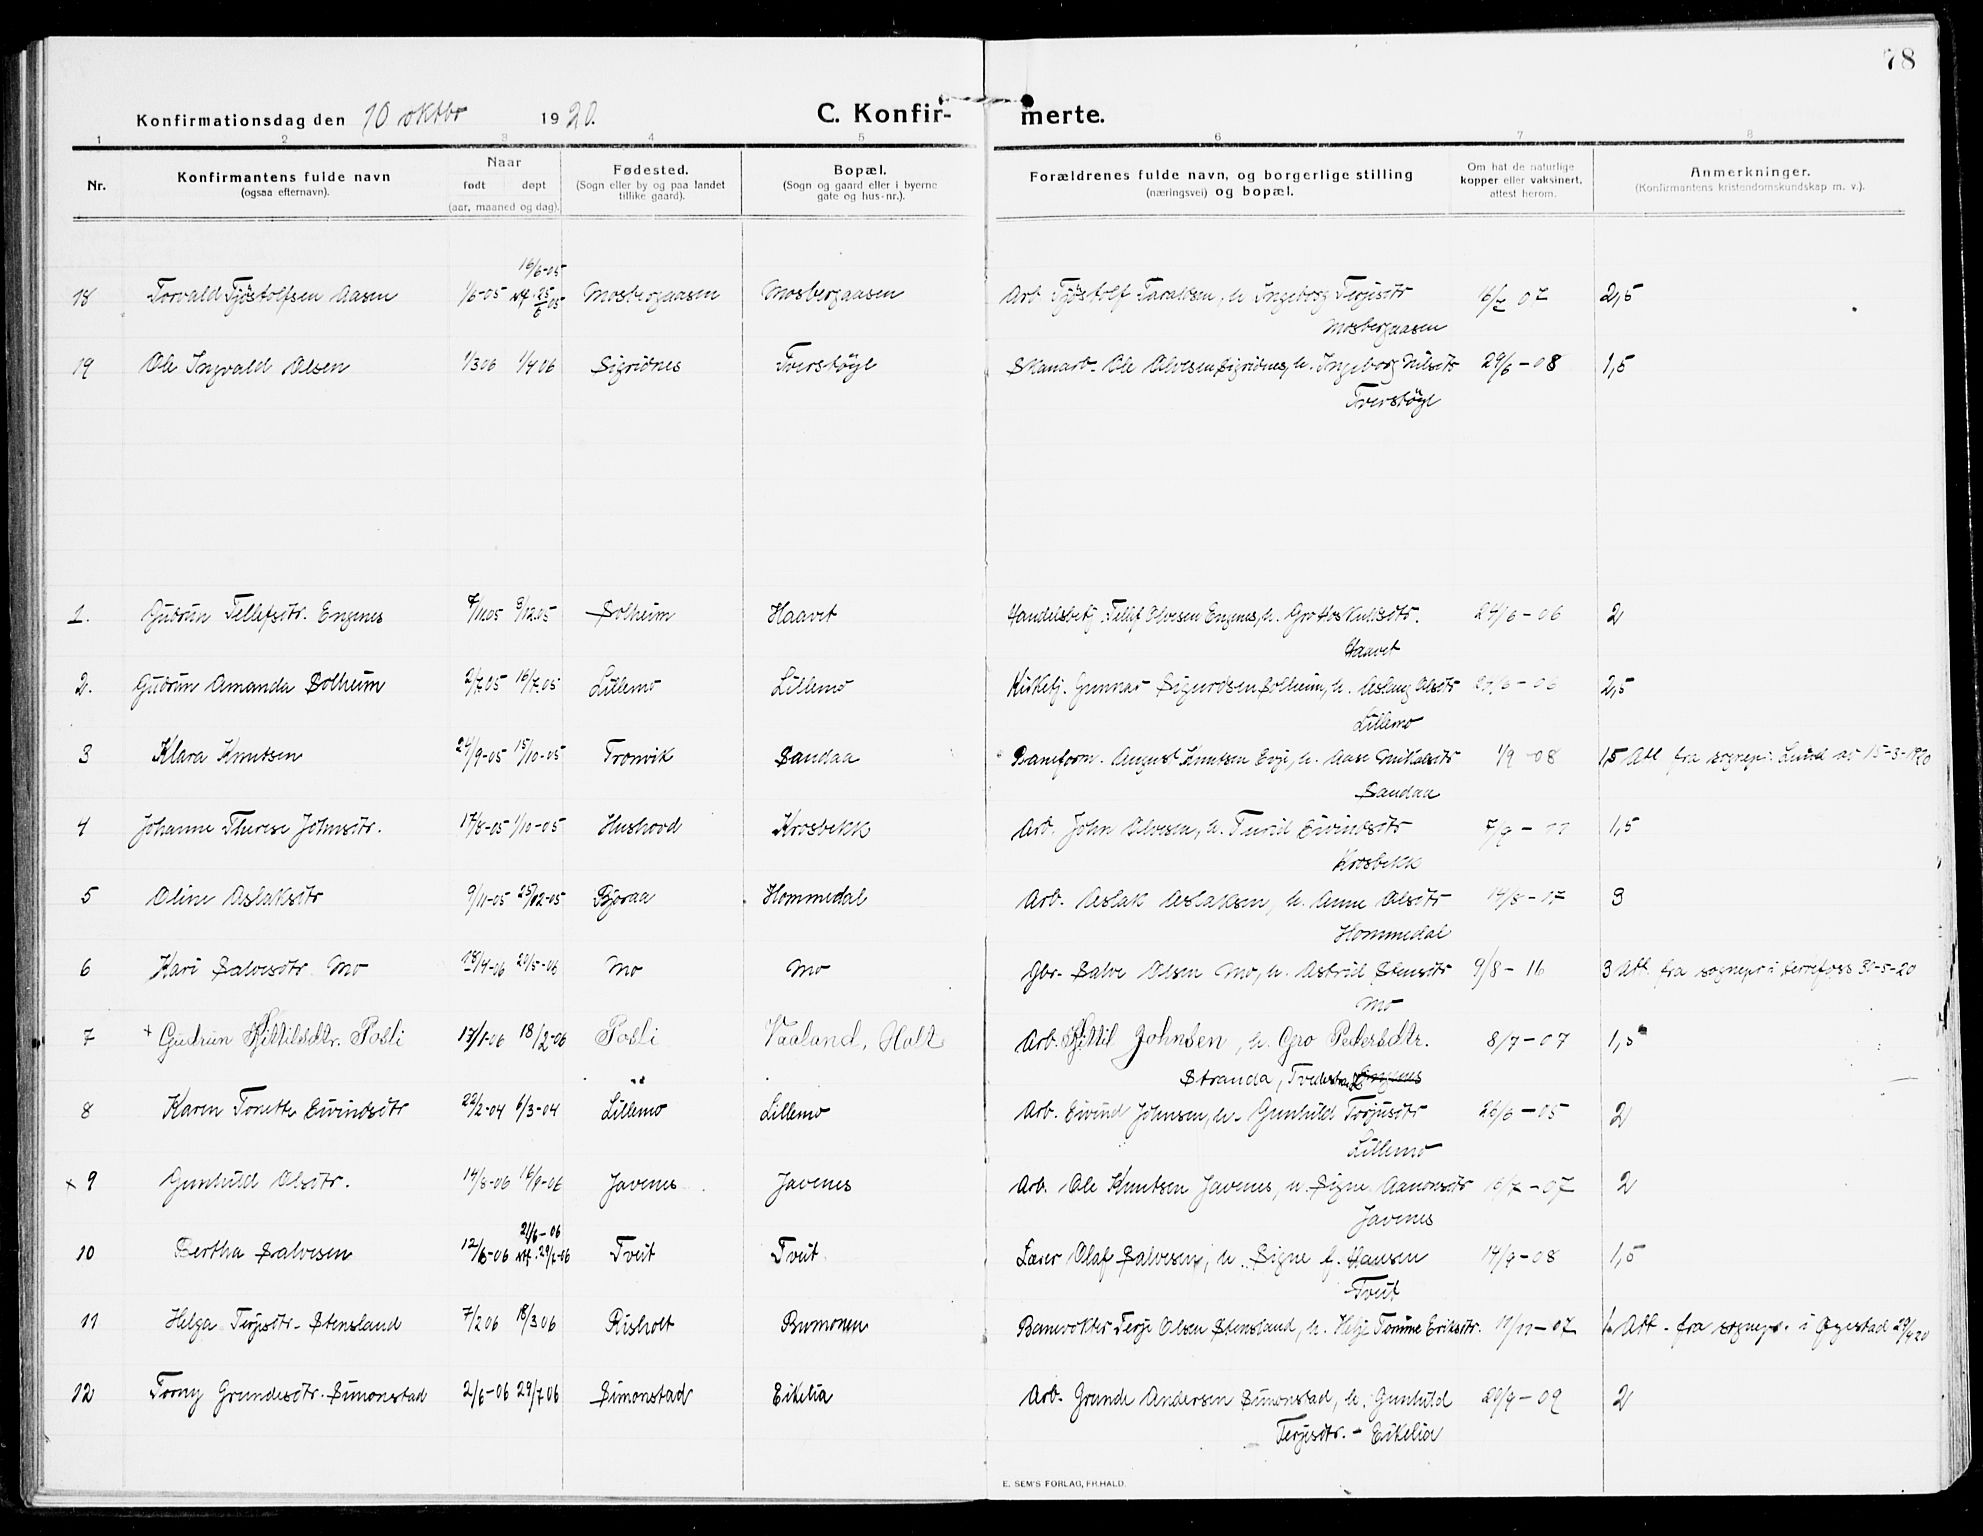 78
Konfirmationsdag den 10 oktbr 1920.
C. Konfirmerte.
1 2 3 4 5 6 7 8
Nr.
Konfirmantens fulde navn
(ogsaa efternavn).
Naar
født døpt
(aar, maaned og dag).
Fødested.
(Sogn eller by og paa landet
tillike gaard).
Bopæl.
(Sogn og gaard eller i byerne
gate og hus-nr.).
Forældrenes fulde navn, og borgerlige stilling
(næringsvei) og bopæl.
Om hat de naturlige
kopper eller vaksinert,
attest herom.
Anmerkninger.
(Konfirmantens kristendomskundskap m. v.).
16/6-05
18 Torvald Tjöstolfsen Aasen 1/6-05 Mosbergaasen Mosbergaasen Arb Tjöstolf Taraldsen, h. Ingeborg Terjusdtr 07 2,5
Mosbergaasen
19 Ole Ingvald Olsen 1/3 06 1/4 06 Sigridnes Tverstöyl Ole Olvesen Sigridnes, h. Ingeborg Nilsdtr 29/6-08 1,5
Tverstöyl
1. Gudrun Tellefsdtr. Engenes 9/12 05 Solheim Haavet Handelsbetj. Tellef Olvesen Engenes, h. Gro Knutsdtr. 24/6-06 2
Haavet
2. Gudrun Amanda Solheim 2/7 05 16/7 05 Lillemo Lillemo Kirketj. Gunnar Sigurdsen Solheim, h. Aslaug Olsdtr 2,5
Lillemo
3 Klara Knutsen 24/9-05 15/10-05 Tromvik Sandaa Baneform. August Knutsen Evje, h. Aase 1/9-08 1,5 Att fra sognepr. i Lund av 15-3-1920
Sandaa
4 Johanne Therese Johnsdtr. 17/8-05 1/10-05 Hushovd Krosbekk Arb. John Olvesen, h. Turid Eivindsdtr 7/9-11 1,5
Krosbekk
5 Oline Aslaksdtr 9/11-05 25/12-05 Bjoraa Hommedal Arb. Aslak Aslaksen, h. Anne Olsdtr 14/8-17 3
Hommedal
6 Kari Salvesdtr Mo 18/4-06 20/5-06 Mo Mo Gbr. Salve Olsen Mo, h. Astrid Stensdtr 9/8-16 3 Att. fra sognepr i Herrefoss 30-5-20
Mo
7 + Gudrun Kjittilsdtr. Posli 17/1-06 18/2-06 Posli Vaaland, Holt Arb. Kjittil Johnsen, h. Gro Pedersdtr. 8/7-07 1,5
Stranda, Tvedestrand Engenes
8 Karen Tonette Eivindsdtr 22/2-04 6/3-04 Lillemo Lillemo Arb. Eivind Johnsen, h. Gunhild Terjusdtr 26/6-05 2
Lillemo
x 9 Gunhild Olsdtr. 14/8-06 16/9-06 Javenes Javenes Arb. Ole Knutsen Javenes, h. Signe Aanonsdtr 2
Javenes
10 Bertha Salvesen 12/6-06 Tveit Tveit Lærer Olaf Salvesen, h. Signe f. Hansen 14/9-08 1,5
Tveit
11 Helga Terjesdtr. Stensland 7/2 06 18/3 06 Risholt Bumonen Banevokter Terje Olsen Stensland, h. Helje Tomine Eriksdtr. 11/11-07 Att. fra sognepr. i Øyestad 29/4 20
12 Torny Grundesdtr. Simonstad 2/6-06 29/7 06 Simonstad Eikelia Arb. Grunde Andersen Simonstad, h. Gunhild 20/9-09 2
Terjesdtr. - Eikelia
E. SEM'S FORLAG, FR.HALD.